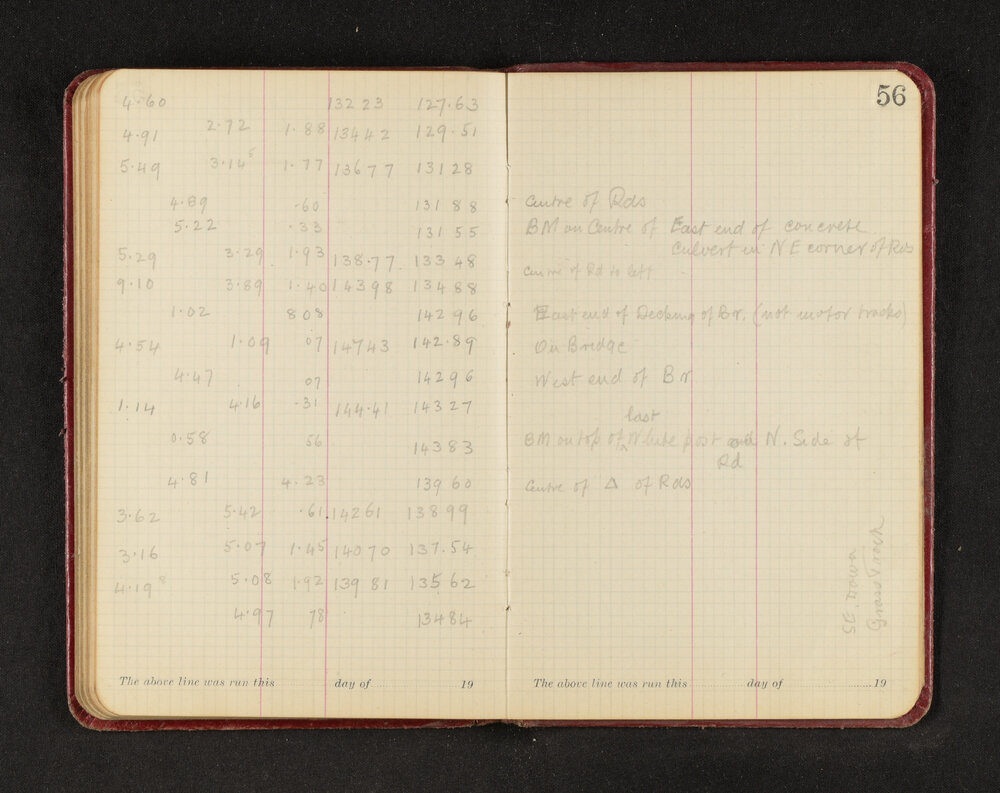 4.60 132 23 127.63
4.91 2.72 1.88 134 42 129.51
5.49 3.14⁵ 1.77 136 77 131 28
4.89 .60 131 88
5.22 .33 131 55
5.29 3.29 1.93 138.77 133 48
9.10 3.89 1.40 143 98 134 88
1.02 8 08 142 96
4.54 1.09 07 147 43 142.89
4.47 07 142 96
1.14 4.16 .31 144.41 143 27
0.58 56 143 83
4.81 4.23 139 60
3.62 5.42 .61 142 61 138 99
3.16 5.07 1.45 140 70 137.54
4.19⁸ 5.08 1.92 139 81 135 62
4.97 78 134 84
The above line was run this day of 19
56
Centre of Rds
BM on Centre of East end of concrete
culvert in NE corner of Rds
Centre of Rd to left
East end of Decking of Br. (not motor tracks)
On Bridge
West end of Br
last
BM on top of ^ White post N. Side of
Rd
Centre of Δ of Rds
SE. Down
Grass Track
The above line was run this day of 19